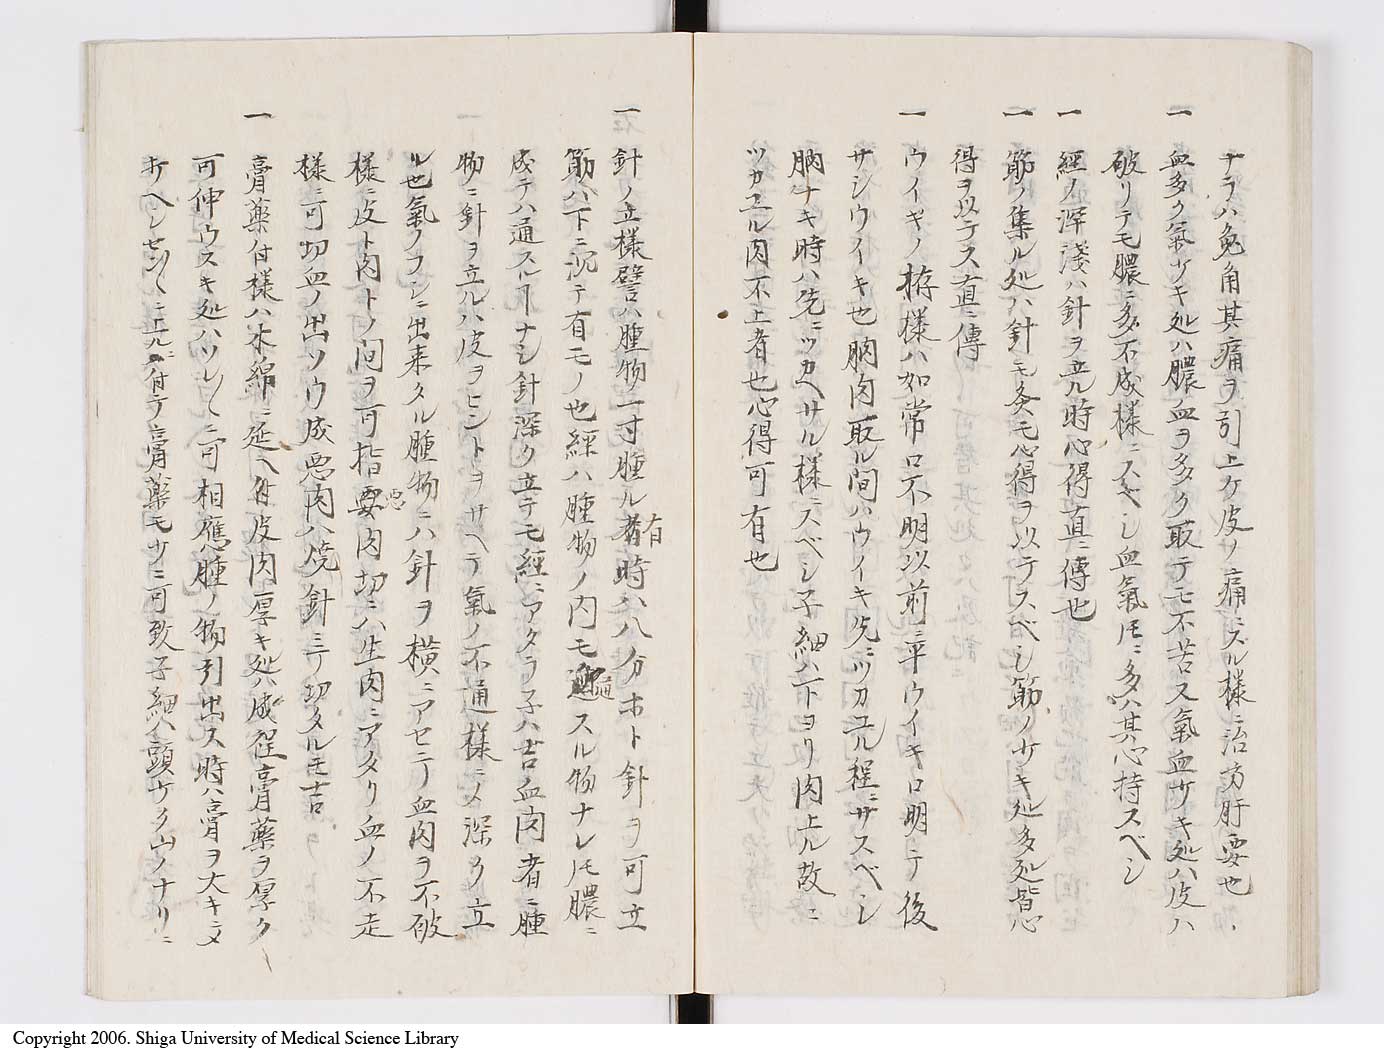 ナラハ兔角其痛ヲ引上ケ皮ノ痛ニズル様ニ治方肝要也
一 血多ク氣サキ処ハ膿ノ血ヲ多ク取テモ不苦ス氣血サキ処ハ皮ハ
破リテモ膿ニ多不成様ニスベシ血氣圧ニ多ハ其心持スベシ
一 經ノ深淺ハ針ヲ立ル時心得直ニ傳也
一 筋ノ集ル処ハ針モ灸モ心得ヲ以テスベシ筋ノサキ処多処皆心
得ヲ以テス直ニ傳
一 ウイキノ拵様ハ如常口不明以前ニ平ウイキロ明テ後
サシウイキ也 肉取ル間ハウイキ先ニツカユル程ニサスベシ
ナキ時ハ先ニツカヘサル様ニスベシ子細ハ下ヨリ肉上ル故ニ
ツカユル肉不上者也心得可有也
一 針ノ立様譬ハ腫物一寸腫ル有時ハ八分ホト針ヲ可立
筋ハ下ニ沉テ有モノ也經ハ腫物ノ内モ通スル物ナレ圧膿ニ
成テハ通スルナシ針深ク立テモ經ニアタラ子ハ吉血肉者ニ腫
物ニ針ヲ立ルハ皮ヲヒントヲサヘテ氣ノ不通様ニメ深ク立
ル也氣ノフシニ出来タル腫物ニハ針ヲ横ニアセニ血肉ヲ不破
様ニ皮ト肉トノ间ヲ可指悪肉切ニハ生肉ニアタリ血ノ不走
様ニ可切血ノ出ソウ成悪肉ハ焼針ニ切タルモ吉
一 膏藥付様ハ木綿ニ延ヘ皮肉厚キ処ハ成程膏藥ヲ厚ク
可伸ウスキ処ハツレ〱ニ可相應腫ノ物引出ス時ハ膏ヲ大キニメ
折ヘシ 付テ膏藥モサニ可致子細ハ頭サク山ノナリニ